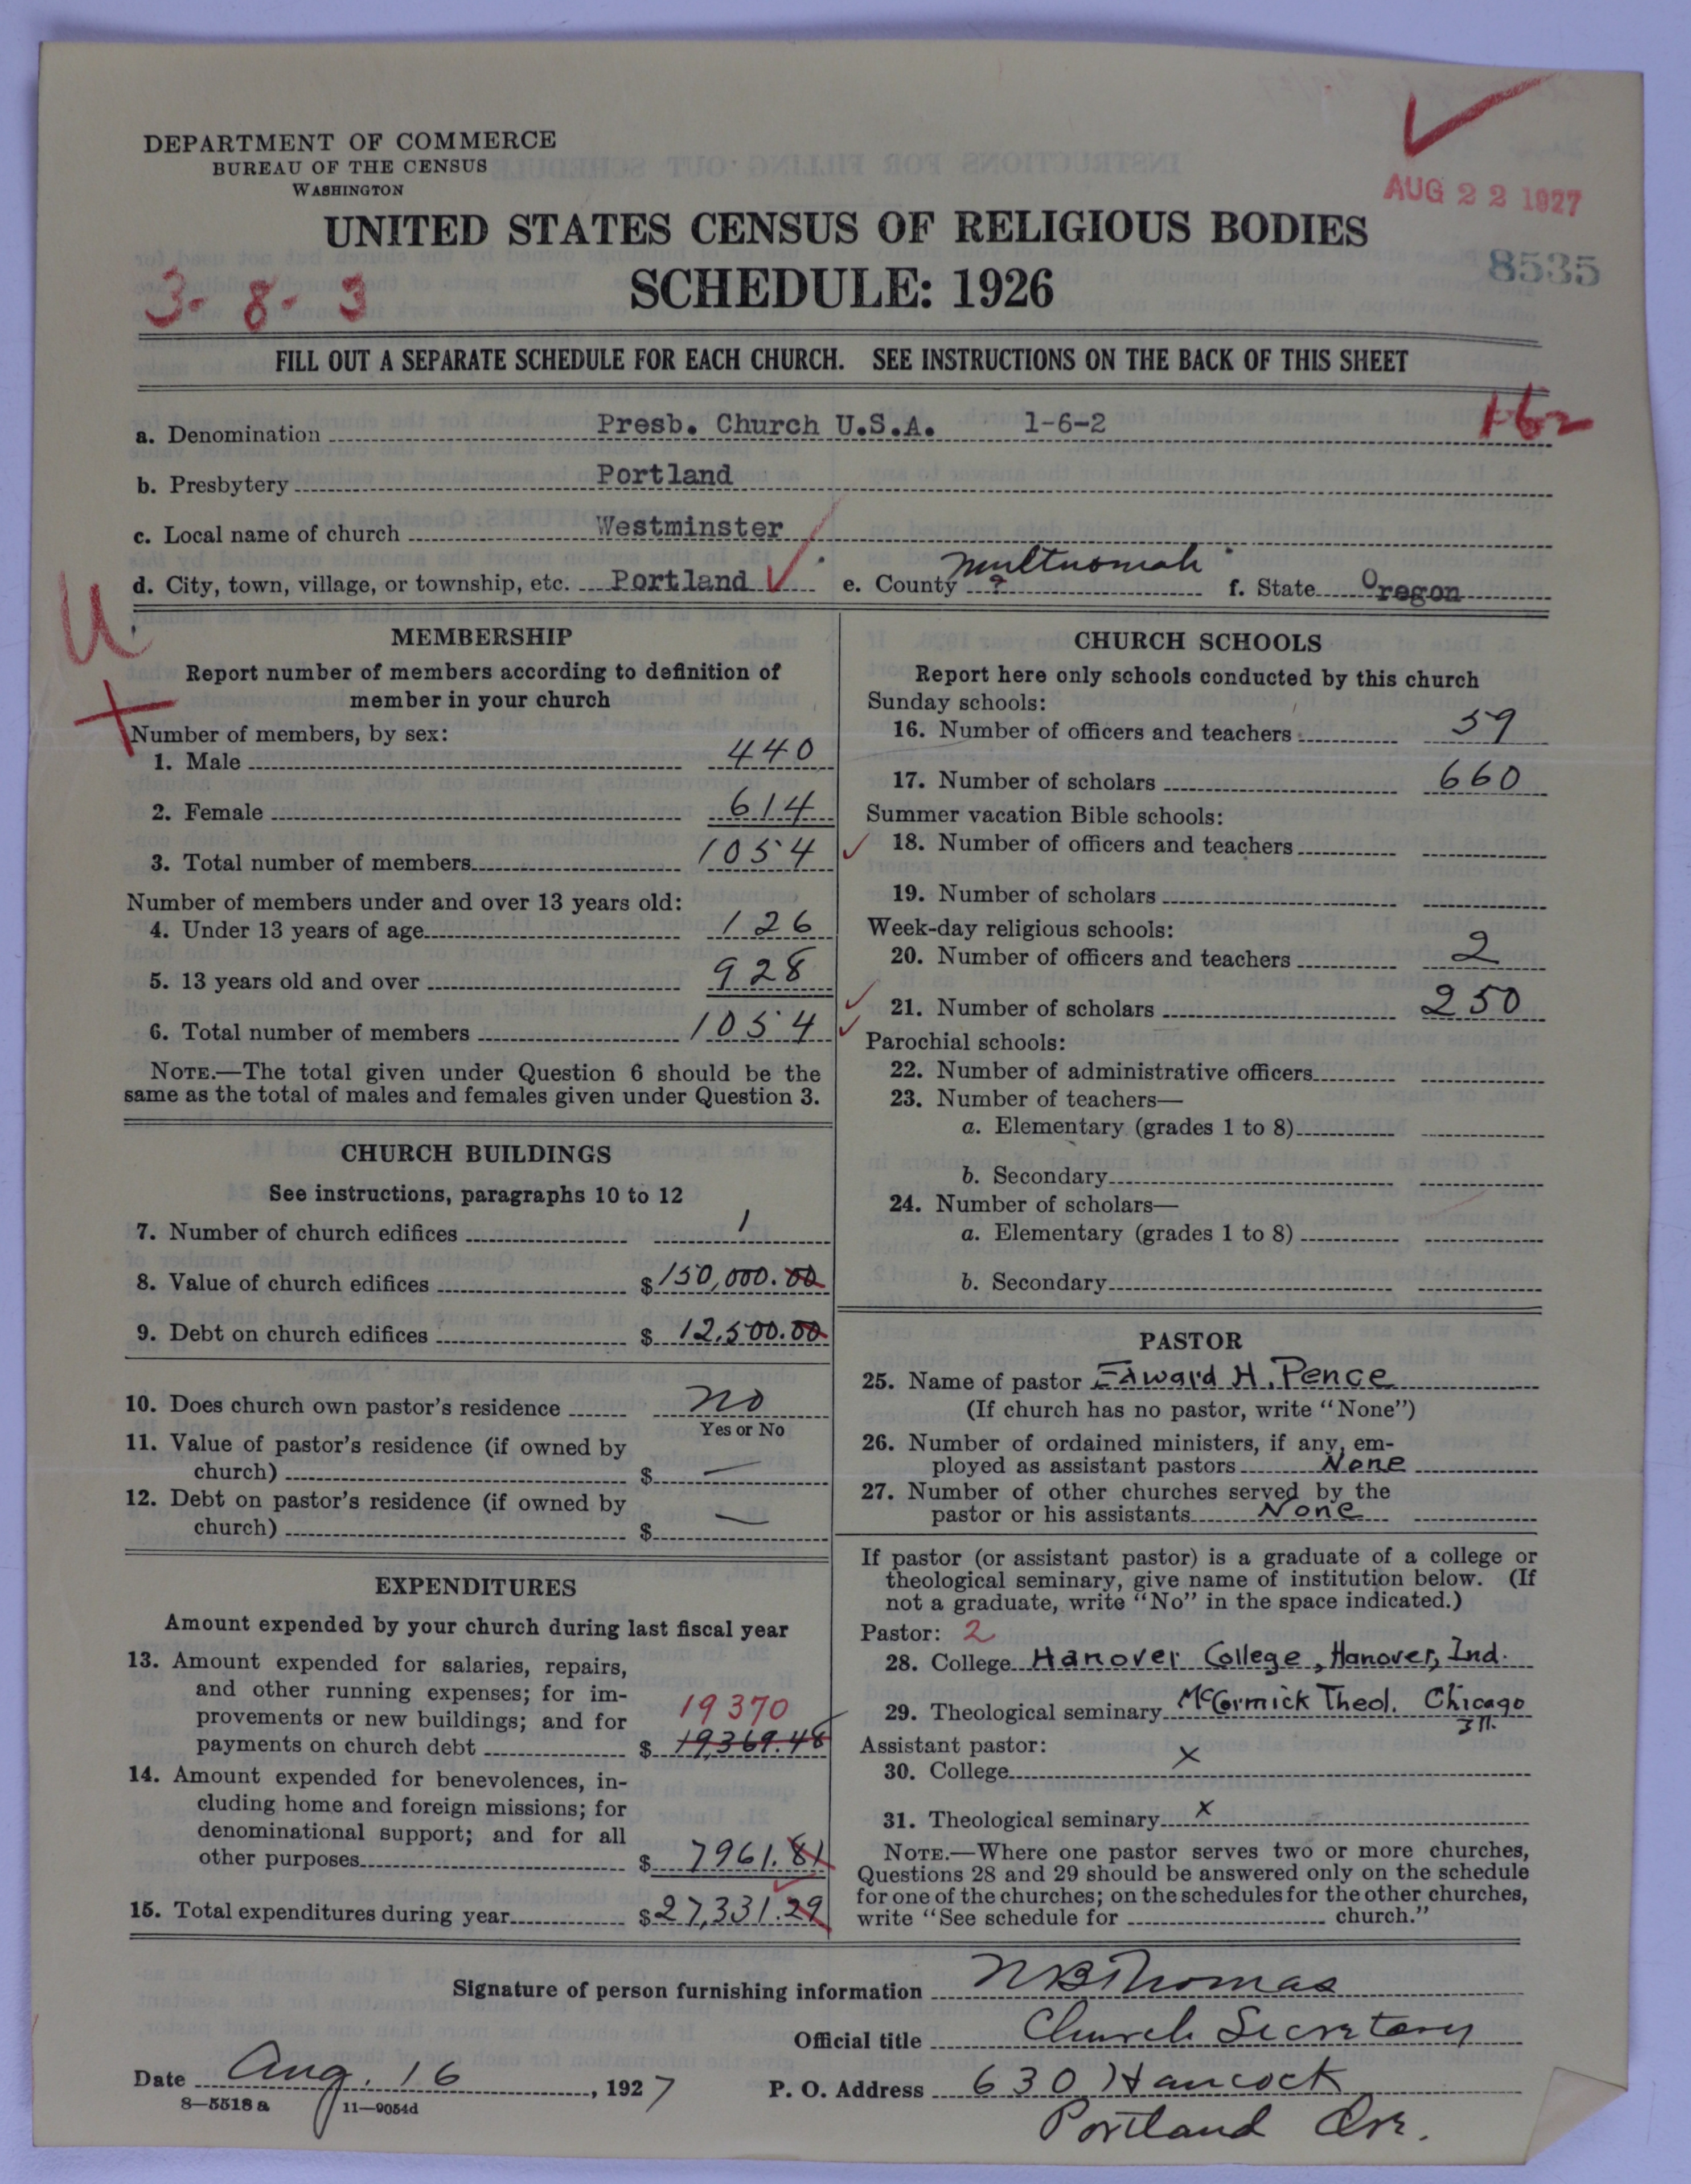 DEPARTMENT OF COMMERCE
BUREAU OF THE CENSUS
WASHINGTON
AUG 22 1927
UNITED STATES CENSUS OF RELIGIOUS BODIES
8535
3-8-3
SCHEDULE: 1926
FILL OUT A SEPARATE SCHEDULE FOR EACH CHURCH. SEE INSTRUCTIONS ON THE BACK OF THIS SHEET
162
a. Denomination Presb. Church U.S.A. 1-6-2
b. Presbytery Portland
c. Local name of church Westminster
d. City, town, village, or township, etc. Portland e. County ? Multnomah f. State Oregon
U
MEMBERSHIP
Report number of members according to definition of
member in your church
Number of members, by sex:
1. Male 440
2. Female 614
3. Total number of members 1054
Number of members under and over 13 years old:
4. Under 13 years of age 126
5. 13 years old and over 928
6. Total number of members 1054
NOTE.—The total given under Question 6 should be the
same as the total of males and females given under Question 3.
CHURCH BUILDINGS
See instructions, paragraphs 10 to 12
7. Number of church edifices 1
8. Value of church edifices $150,000.00
9. Debt on church edifices $12,500.00
10. Does church own pastor's residence no
Yes or No
11. Value of pastor's residence (if owned by
church) $ —
12. Debt on pastor's residence (if owned by
church) $ —
EXPENDITURES
Amount expended by your church during last fiscal year
13. Amount expended for salaries, repairs,
and other running expenses; for im-
provements or new buildings; and for 19370
payments on church debt $ 19,369.48
14. Amount expended for benevolences, in-
cluding home and foreign missions; for
denominational support; and for all
other purposes $ 7961.81
15. Total expenditures during year $27,331.29
CHURCH SCHOOLS
Report here only schools conducted by this church
Sunday schools:
16. Number of officers and teachers 59
17. Number of scholars 660
Summer vacation Bible schools:
18. Number of officers and teachers
19. Number of scholars
Week-day religious schools:
20. Number of officers and teachers 2
21. Number of scholars 250
Parochial schools:
22. Number of administrative officers
23. Number of teachers—
a. Elementary (grades 1 to 8)
b. Secondary
24. Number of scholars—
a. Elementary (grades 1 to 8)
b. Secondary
PASTOR
25. Name of pastor Edward H. Pence
(If church has no pastor, write "None")
26. Number of ordained ministers, if any, em-
ployed as assistant pastors None
27. Number of other churches served by the
pastor or his assistants None
If pastor (or assistant pastor) is a graduate of a college or
theological seminary, give name of institution below. (If
not a graduate, write "No" in the space indicated.)
Pastor: 2
28. College Hanover College, Hanover, Ind.
29. Theological seminary McCormick Theol. Chicago
Ill.
Assistant pastor:
30. College x
31. Theological seminary x
NOTE.—Where one pastor serves two or more churches,
Questions 28 and 29 should be answered only on the schedule
for one of the churches; on the schedules for the other churches,
write "See schedule for church."
Signature of person furnishing information N B Thomas
Official title Church Secretary
Date Aug. 16, 1927 P. O. Address 630 Hancock
8—5518 a 11—9054d
Portland Ore.